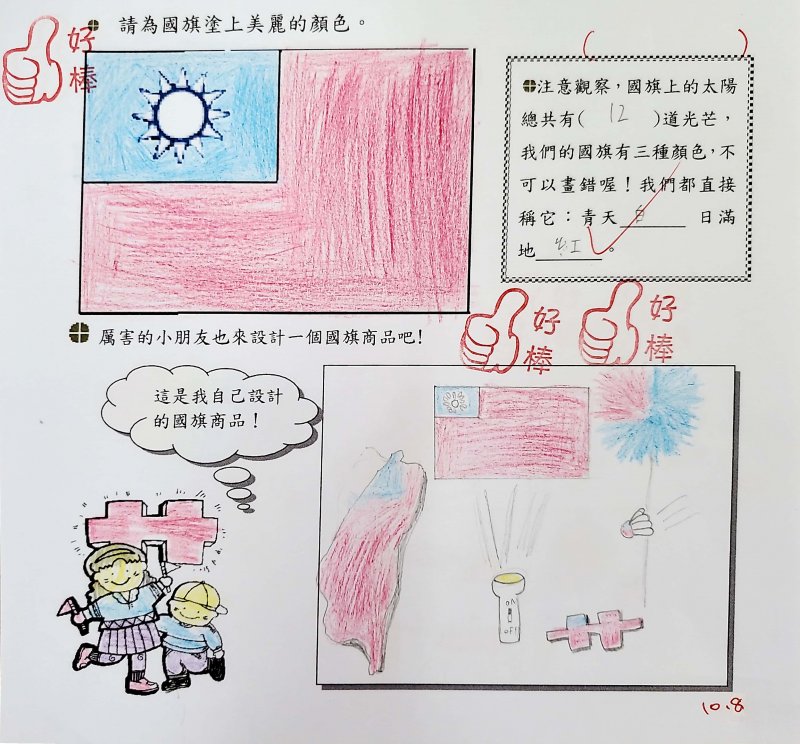 請為國旗塗上美麗的顏色。
好
棒
注意觀察,國旗上的太陽
總共有( 12 )道光芒,
我們的國旗有三種顏色,不
可以畫錯喔!我們都直接
稱它:青天 白 日滿
地 紅 。
厲害的小朋友也來設計一個國旗商品吧!
好
棒
好
棒
這是我自己設計
的國旗商品!
ON
OFF
10.8